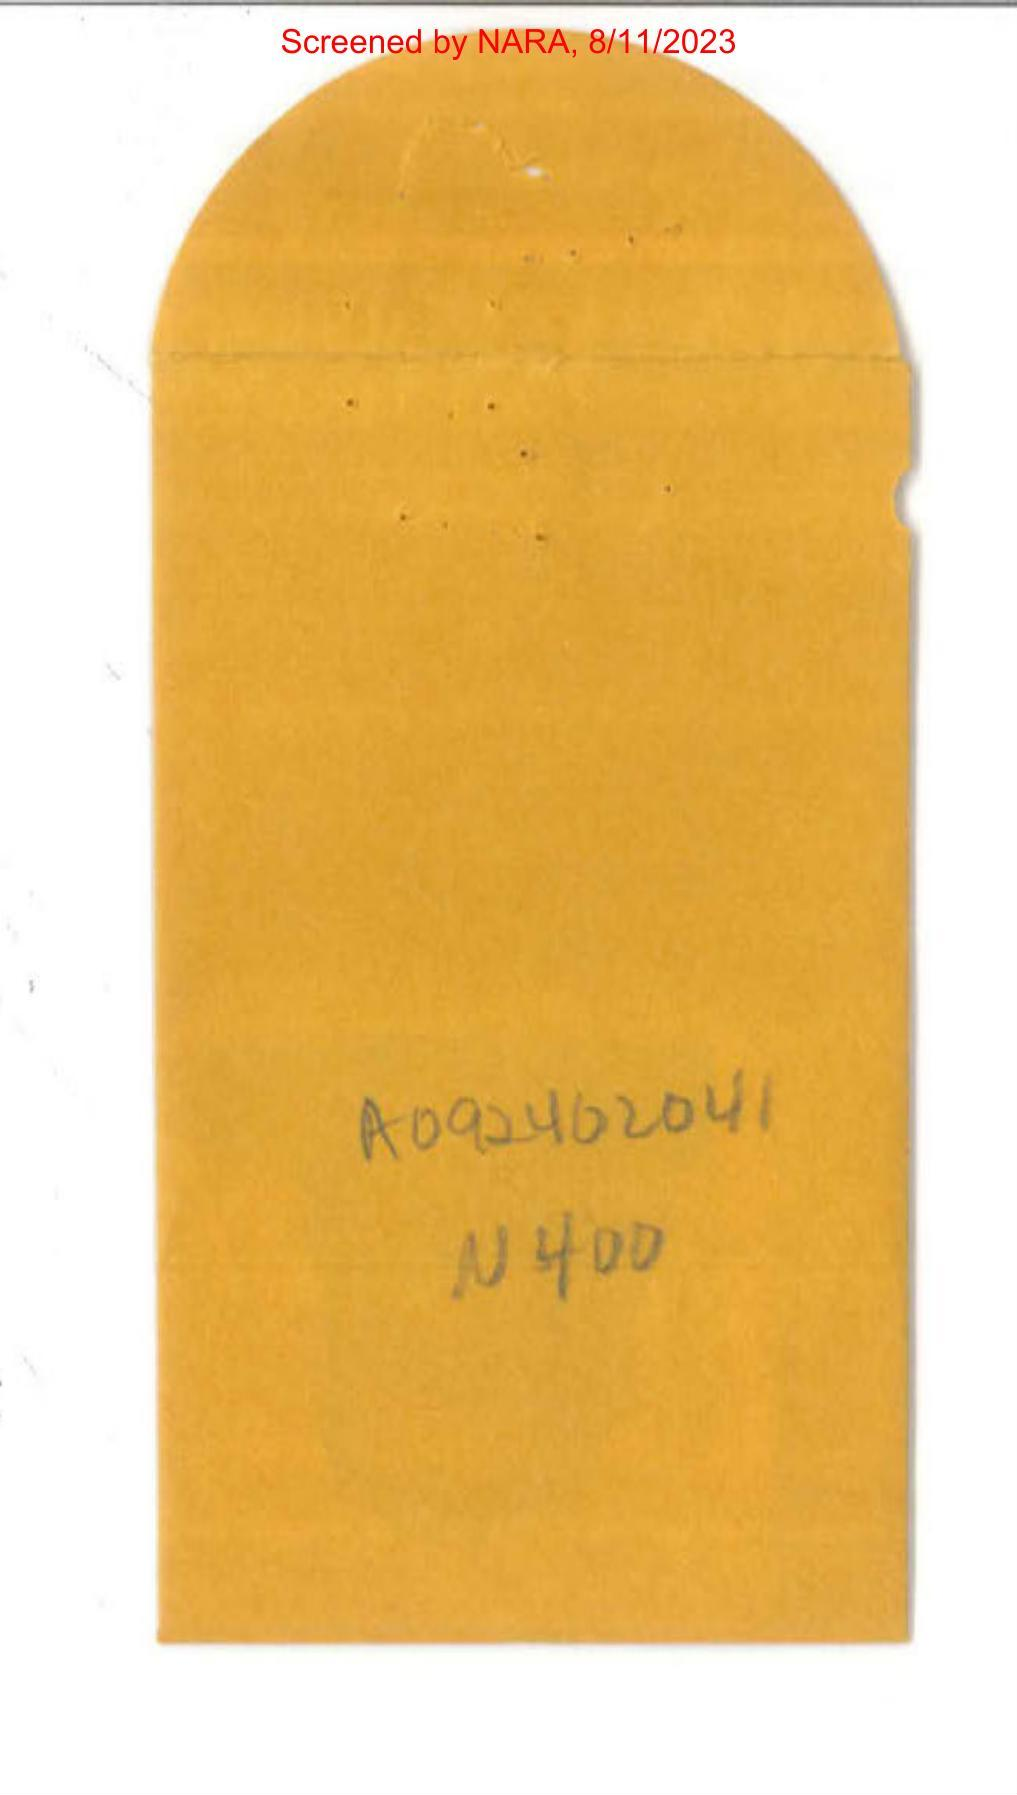 Screened by NARA, 8/11/2023
A092402041
N400